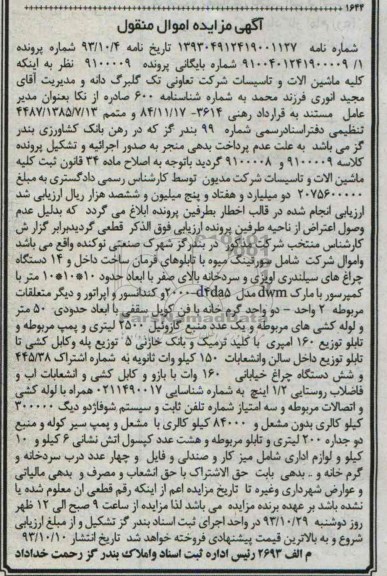 ۱۶۴۴
آگهی مزایده اموال منقول
شماره نامه ۱۳۹۳۰۴۹۱۲۴۱۹۰۰۱۱۲۷ تاریخ نامه ۹۳/۱۰/۴ شماره پرونده
۹۱۰۰۴۰۱۲۴۱۹۰۰۰۰۹ /۱ شماره بایگانی پرونده ۹۱۰۰۰۰۹ نظر به اینکه
کلیه ماشین الات و تاسیسات شرکت تعاونی تک گلبرگ دانه و مدیریت آقای
مجید انوری فرزند محمد به شماره شناسنامه ۶۰۰ صادره از نکا بعنوان مدیر
عامل مستند به قرارداد رهنی ۳۶۱۴- ۸۴/۱۱/۱۷ و متمم ۴۴۸۷/۱۳۸۵/۷/۱۳
تنظیمی دفتراسنادرسمی شماره ۹۹ بندر گز که در رهن بانک کشاورزی بندر
گز می باشد به علت عدم پرداخت بدهی منجر به صدور اجرائیه و تشکیل پرونده
کلاسه ۹۱۰۰۰۰۹ و ۹۱۰۰۰۰۸ گردید باتوجه به اصلاح ماده ۳۴ قانون ثبت کلیه
ماشین الات و تاسیسات شرکت مدیون توسط کارشناس رسمی دادگستری به مبلغ
۲۰۷۵۶۰۰۰۰۰ دو میلیارد و هفتاد و پنج میلیون و ششصد هزار ریال ارزیابی شد
ارزیابی انجام شده در قالب اخطار بطرفین پرونده ابلاغ می گردد که بدلیل عدم
وصول اعتراض از ناحیه طرفین پرونده ارزیابی فوق الذکر قطعی گردیدبرابر گزارش
کارشناس منتخب شرکت مذکور در بندرگز شهرک صنعتی نوکنده واقع می باشد
واموال شرکت شامل سورتینگ میوه با تابلوهای فرمان ساخت داخل و ۱۴ دستگاه
چراغ های سیلندری اویزی و سردخانه بالای صفر با ابعاد حدود ۱۰*۱۰*۱۰ متر با
کمپرسور با مارک dwm مدل d۴da۵-۲۰۰۰ و کندانسور و اپراتور و دیگر متعلقات
مربوطه ۲ واحد - دو واحد گرم خانه با فن کویل سقفی با ابعاد حدودی ۵۰ متر
و لوله کشی های مربوطه و یک عدد منبع گازوئیل ۲۵۰۰ لیتری و پمپ مربوطه و
تابلو توزیع ۱۶۰ امپری با کلید ترمیک و بانک خازنی ۵ توزیع پله وکابل کشی تا
تابلو توزیع داخل سالن وانشعابات ۱۵۰ کیلو وات ثانویه به شماره اشتراک ۴۴۵/۳۸
و شش دستگاه چراغ خیابانی ۱۶۰ وات با بازو و کابل کشی و انشعابات اب و
فاضلاب روستایی ۱/۲ اینچ به شماره شناسایی ۰۲۱۱۴۹۰۰۱۷ همراه با لوله کشی
و اتصالات مربوطه و سه امتیاز شماره تلفن ثابت و سیستم شوفاژدو دیگ ۳۰۰۰۰۰
کیلو کالری بدون مشعل و ۸۴۰۰۰ کیلو کالری با مشعل و پمپ سیر کوله و منبع
دو جداره ۲۰۰ لیتری و تابلو مربوطه و هشت عدد کپسول اتش نشانی ۶ کیلو و ۱۰
کیلو و لوازم اداری شامل میز کار و صندلی و فایل و چهار عدد درب سردخانه و
گرم خانه و .. بدهی بابت حق الاشتراک یا حق انشعاب و مصرف و بدهی مالیاتی
و عوارض شهرداری وغیره تا تاریخ مزایده اعم از اینکه رقم قطعی ان معلوم شده یا
نشده باشد بر عهده برنده مزایده می باشد لذا مزایده از ساعت ۹ صبح الی ۱۲ ظهر
روز دوشنبه ۹۳/۱۰/۲۹ در واحد اجرای ثبت اسناد بندر گز تشکیل و از مبلغ ارزیابی
شروع و به بالاترین قیمت پیشنهادی فروخته خواهد شد تاریخ انتشار ۹۳/۱۰/۱۰
م الف ۲۶۹۳ رئیس اداره ثبت اسناد واملاک بندر گز رحمت خداداد